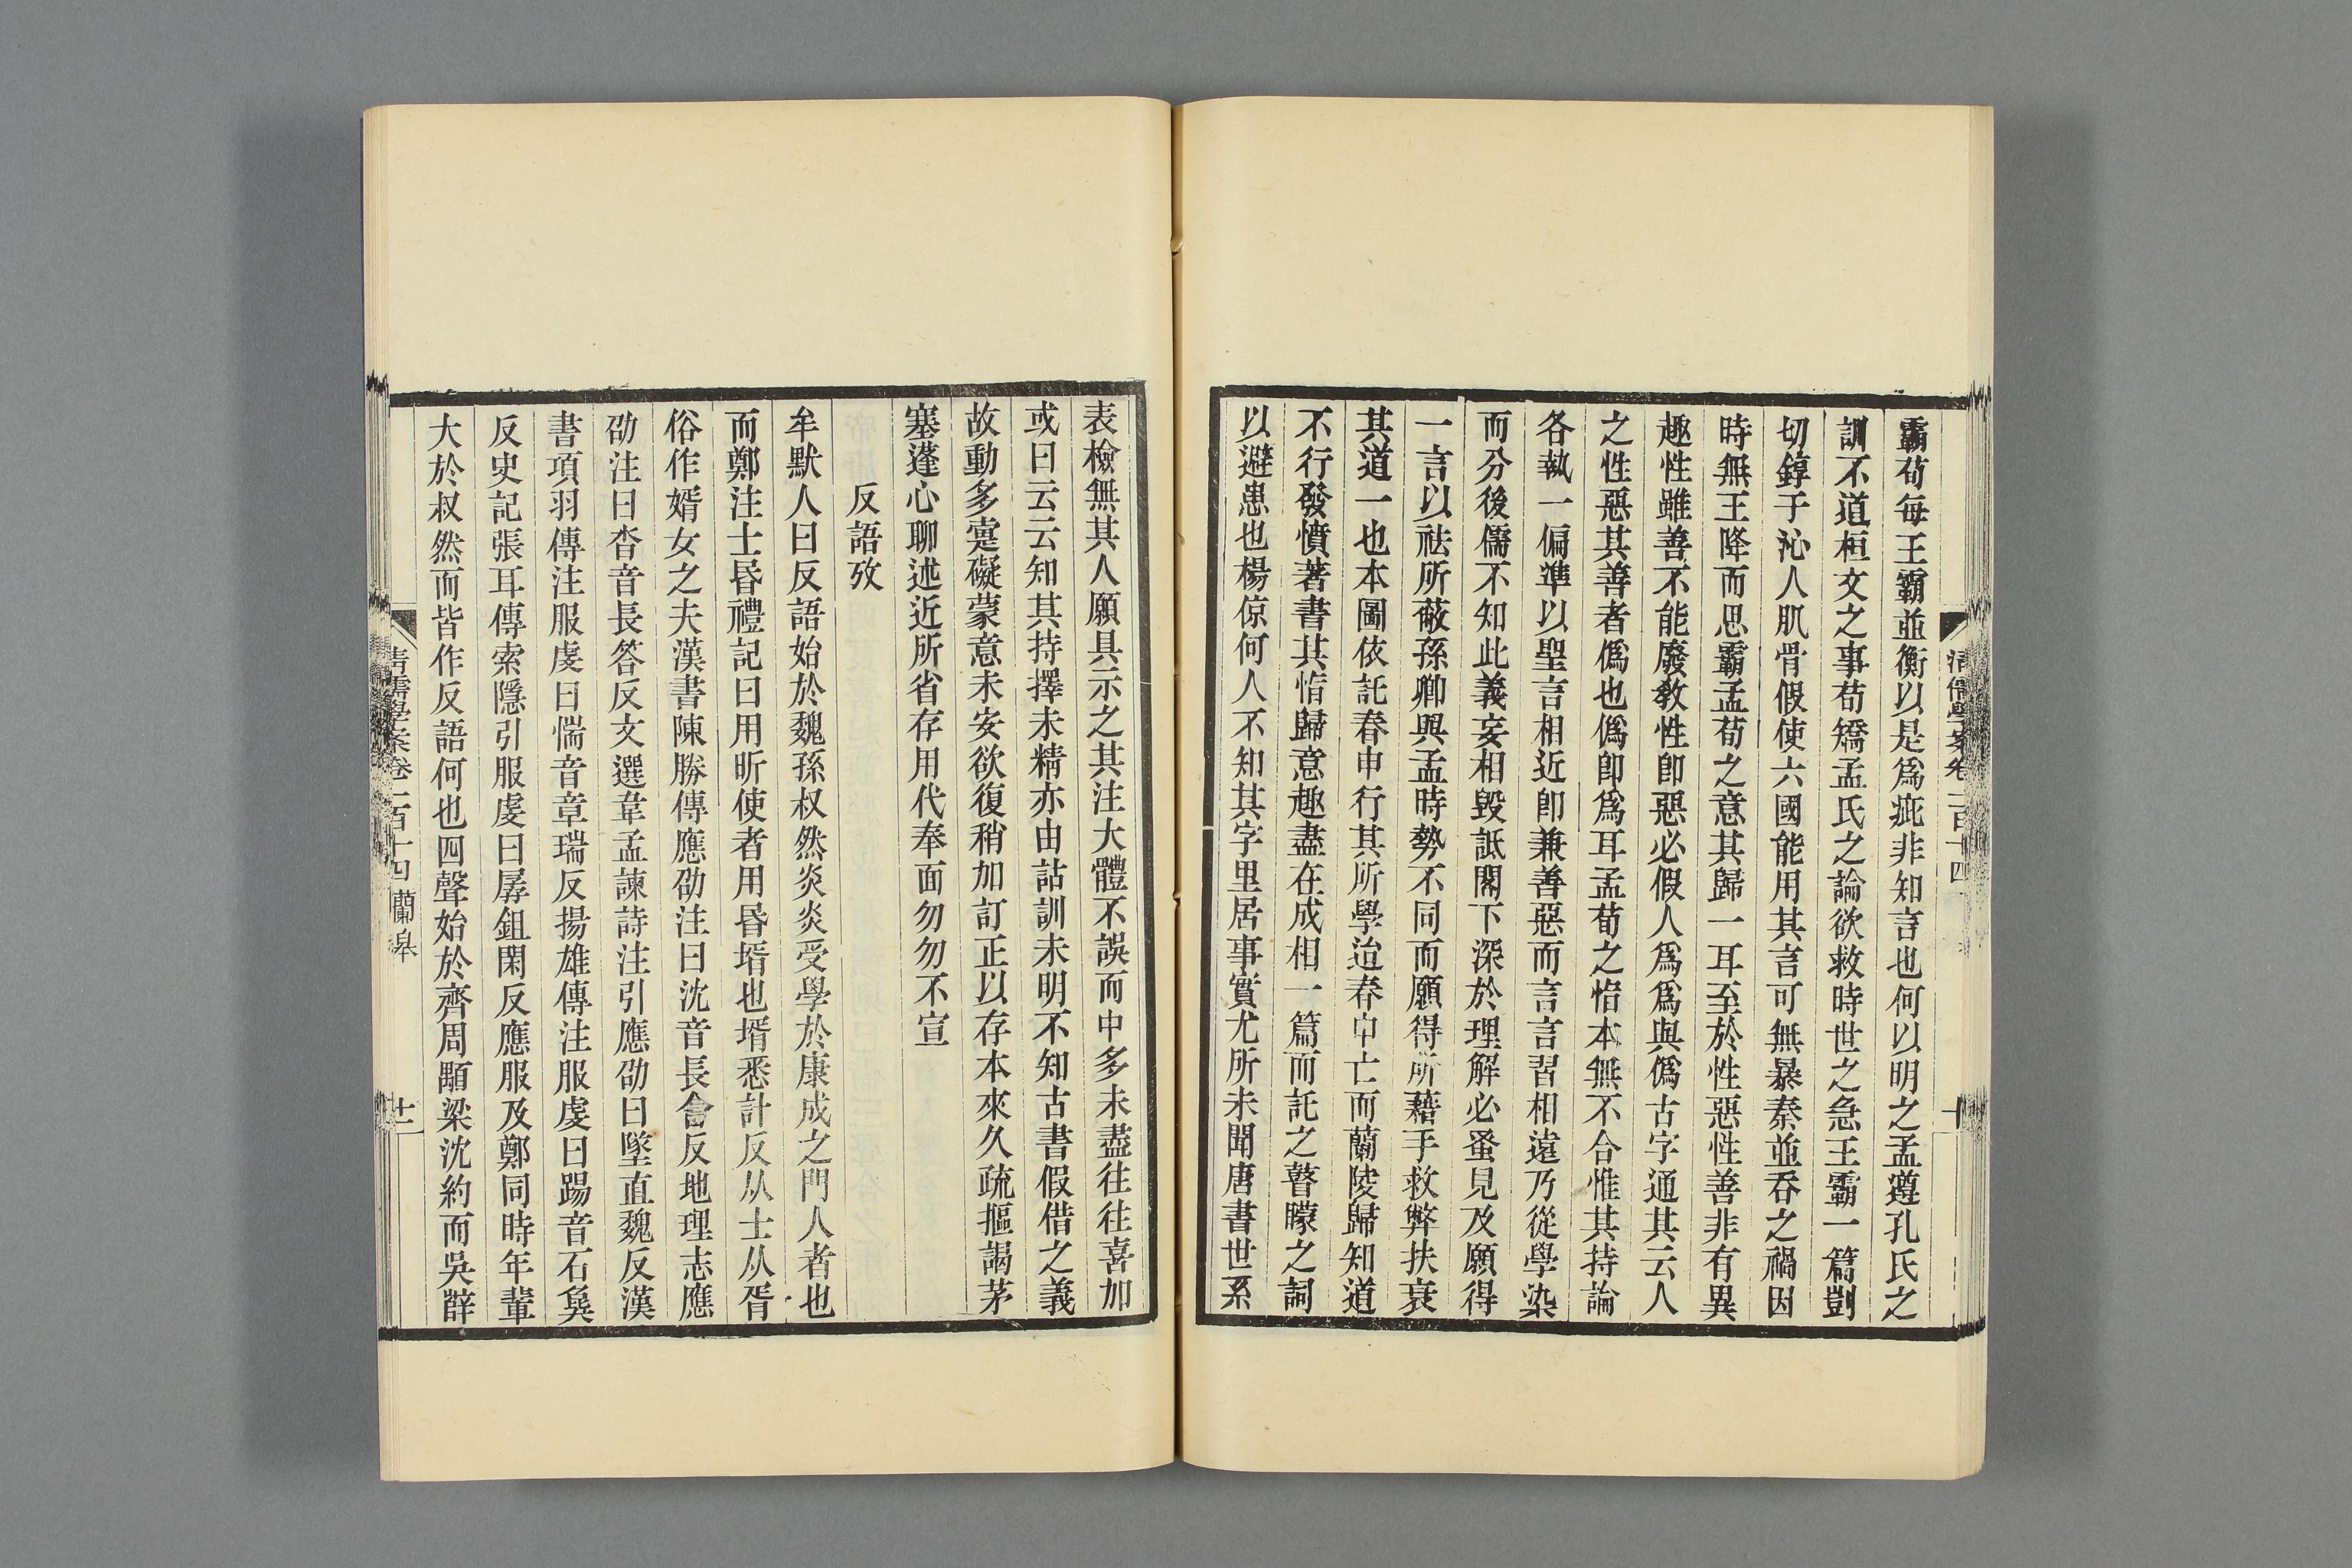 霸荀每王霸並衡以是爲疵非知言也何以明之孟遵孔氏之
訓不道桓文之事荀矯孟氏之論欲救時世之急王霸一篇剴
切錞于沁人肌骨假使六國能用其言可無暴秦並吞之禍因
時無王降而思霸孟荀之意其歸一耳至於性惡性善非有異
趣性雖善不能廢敎性卽惡必假人爲爲與僞古字通其云人
之性惡其善者僞也僞卽爲耳孟荀之恉本無不合惟其持論
各執一偏準以聖言相近卽兼善惡而言言習相遠乃從學染
而分後儒不知此義妄相毀詆閣下深於理解必蚤見及願得
一言以祛所蔽孫卿與孟時勢不同而願得所藉手救弊扶衰
其道一也本圖依託春申行其所學迨春申亡而蘭陵歸知道
不行發憤著書其恉歸意趣盡在成相一篇而託之瞽矇之詞
以避患也楊倞何人不知其字里居事實尤所未聞唐書世系
清儒學案卷二百十四
十
表檢無其人願具示之其注大體不誤而中多未盡往往喜加
或曰云云知其持擇未精亦由詁訓未明不知古書假借之義
故動多疐礙蒙意未安欲復稍加訂正以存本來久疏摳謁茅
塞蓬心聊述近所省存用代奉面勿勿不宣
反語攷
牟默人曰反語始於魏孫叔然炎炎受學於康成之門人者也
而鄭注士昏禮記曰用昕使者用昏壻也壻悉計反从士从胥
俗作婿女之夫漢書陳勝傳應劭注曰沈音長含反地理志應
劭注曰沓音長答反文選韋孟諫詩注引應劭曰墜直魏反漢
書項羽傳注服虔曰惴音章瑞反揚雄傳注服虔曰踢音石㚟
反史記張耳傳索隱引服虔曰孱鉏閑反應服及鄭同時年輩
大於叔然而皆作反語何也四聲始於齊周顒梁沈約而吳辥
清儒學案卷二百十四 蘭皋
十一